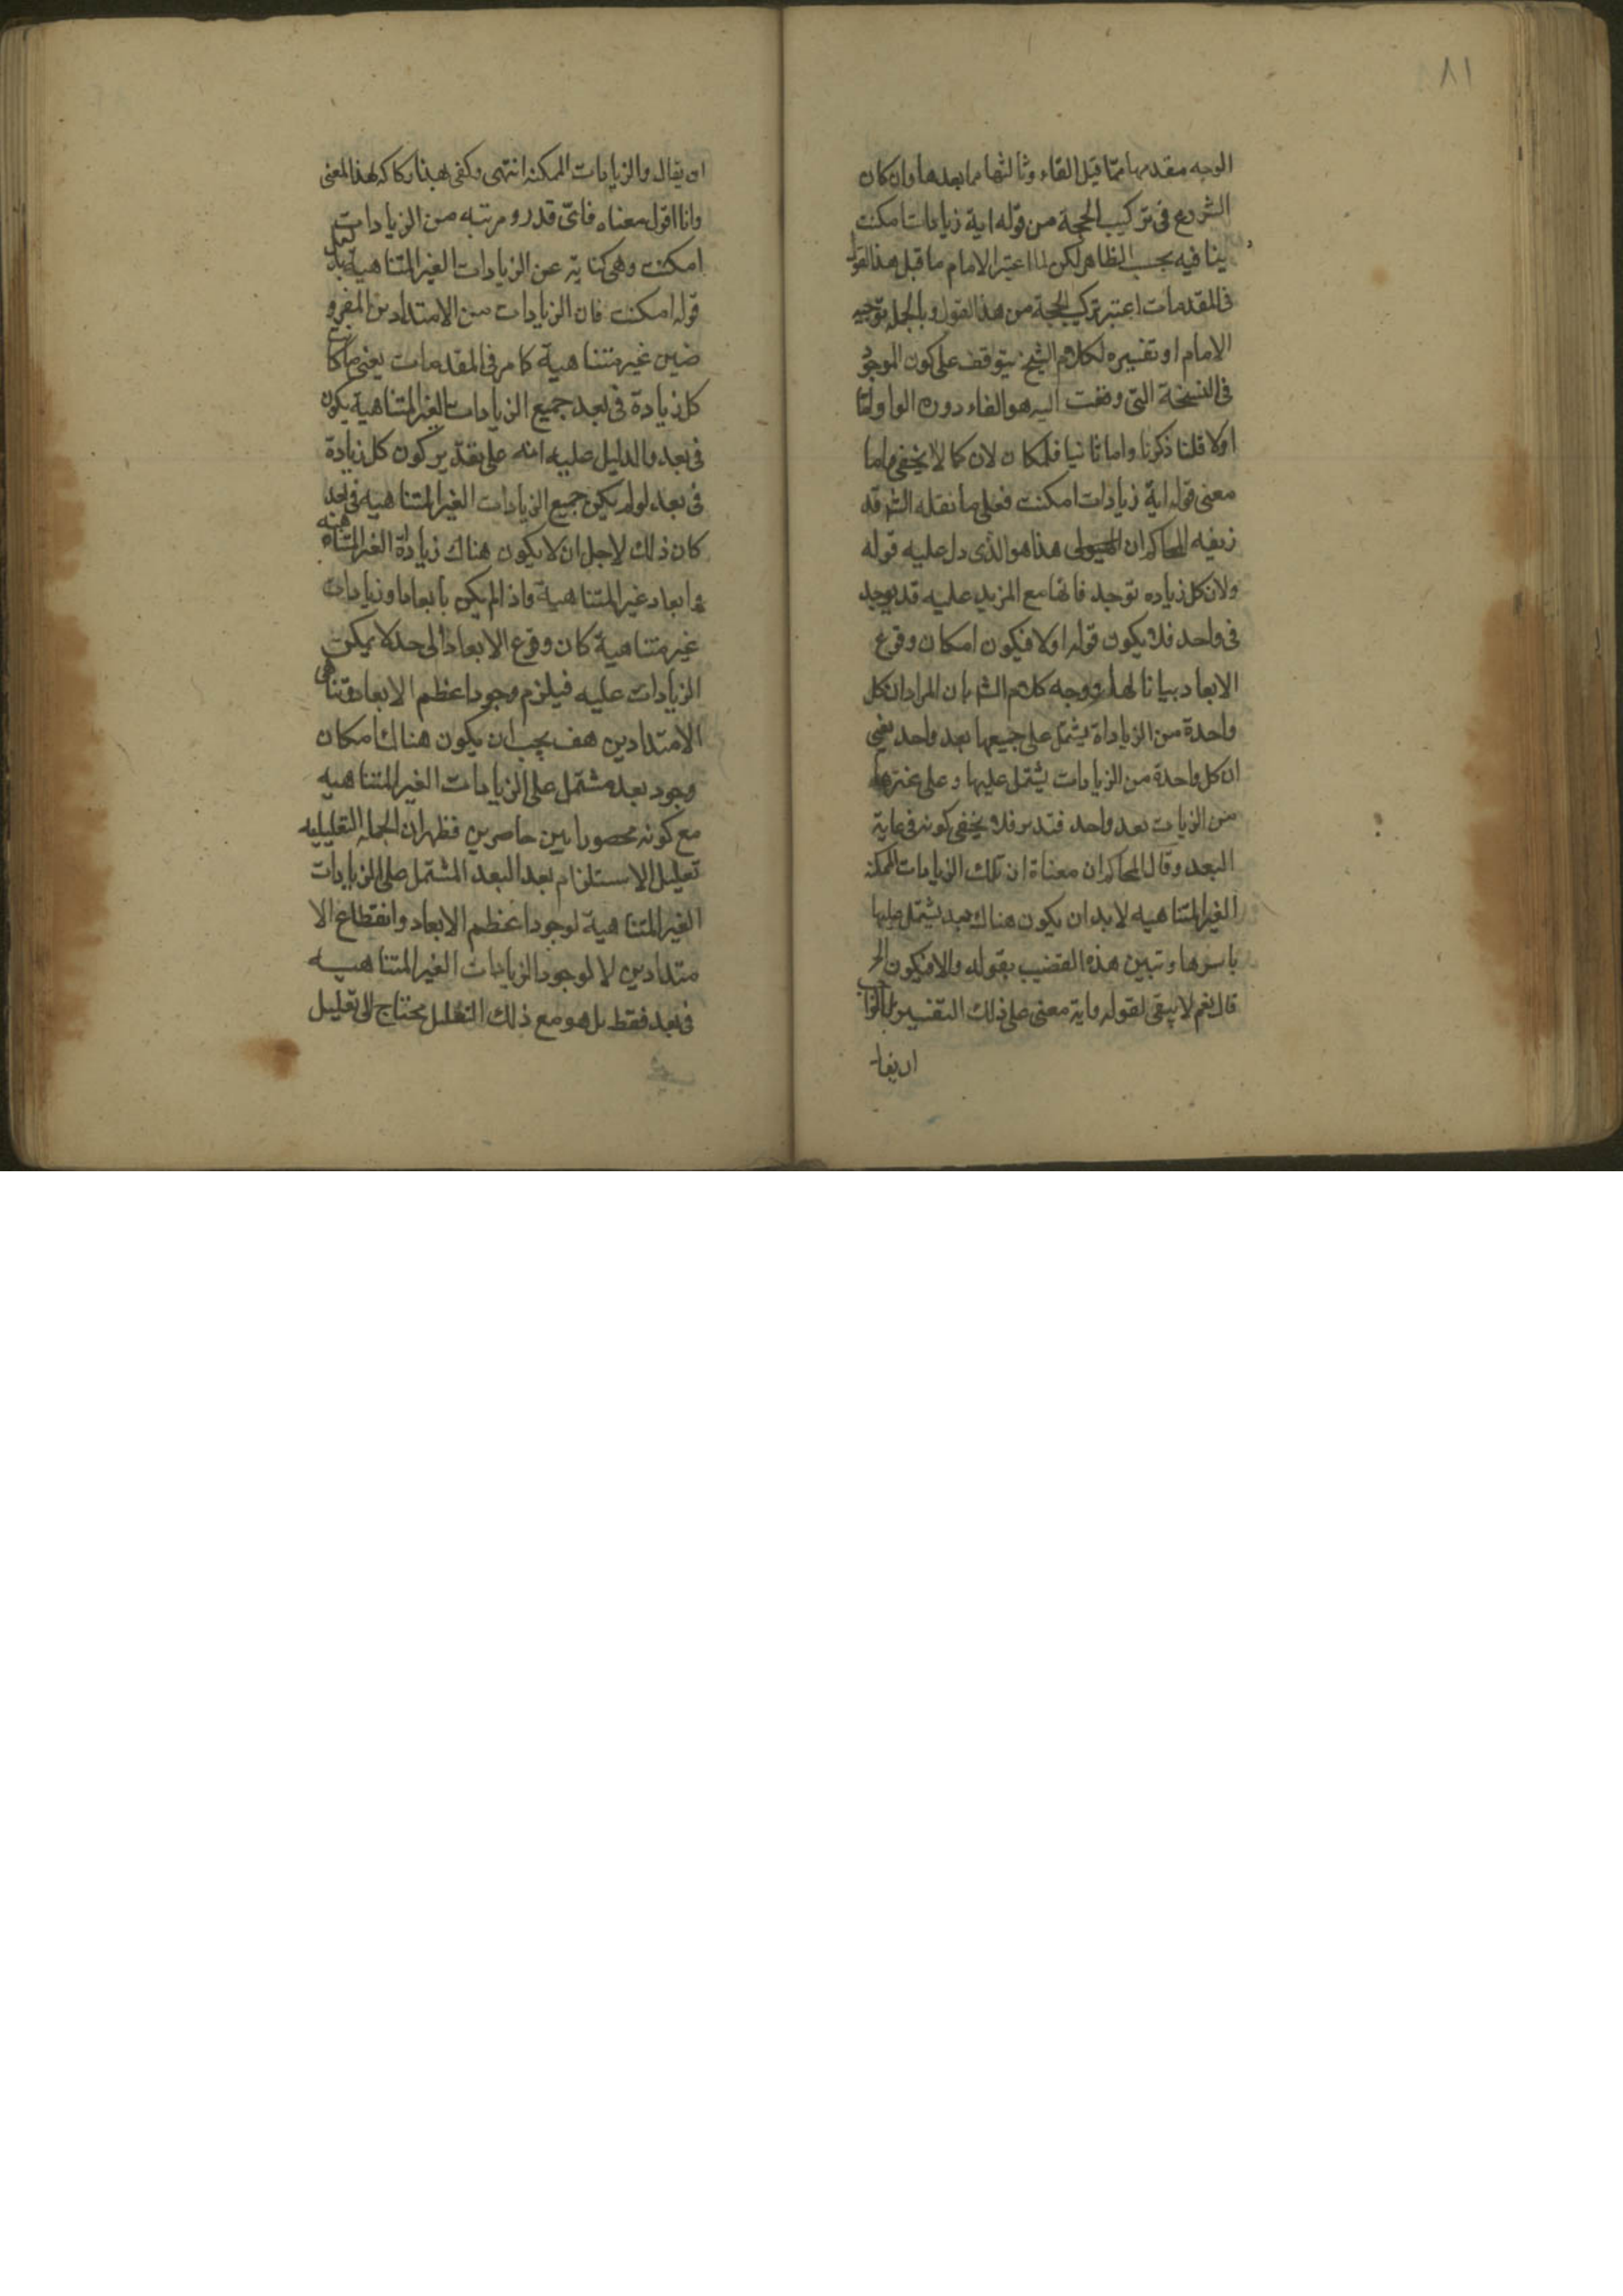 ٨١
الوجه مقدمها مما قبل الفاء وثالثها مما بعدها وان كان
الشروع فى تركيب الحجة من قوله اية زيادات امكنت
ينافيه بحسب الظاهر لكن لما اعتبر الامام ما قبل هذا القول
فى المقدمات اعتبر تركيب الحجة من هذا القول وبالجملة توجيه
الامام او تفسيره لكلام الشيخ يتوقف على كون الموجود
فى النسخة التى وقعت اليه هو الفاء دون الواو اما
اولا فلما ذكرنا واما ثانيا فلمكان لان كما لا يخفى واما
معنى قوله اية زيادات امكنت فعلى ما نقله الش قد
زيفه المحاكم ان هذا هو الذى دل عليه قوله
ولان كل زياده توجد فانها مع المزيد عليه قد يوجد
فى واحد فلا يكون قوله اولا فيكون امكان وقوع
الابعاد بيانا لها ووجه كلام الش بان المراد ان كل
واحدة من الزياداة يشتمل على جميعها بعد واحد يعنى
ان كل واحدة من الزيادات يشتمل عليها وعلى غيرها
من الزيات بعد واحد فتدبر فلا يخفى كونه فى غاية
البعد وقال المحاكم ان معناة ان تلك الزيادات الممكنه
الغير المتناهيه لابد ان يكون هناك بعد يشتمل عليها
باسرها وتبين هذه القضيب بقوله والا فيكون الخ
قال نعم لا يبقى لقوله واية معنى على ذلك التفسير
ان يقا
ان يقال والزيادات الممكنه انتهى وكفى بهذا ركاكه لهذا المعنى
وانا اقول معناه فاىّ قدر ومرتبه من الزيادات
امكنت وهى كناية عن الزيادات الغير المتناهية
قوله امكنت فان الزيادات من الامتدادين المفرو
ضين غير متناهية كما مر فى المقدمات يعنى
كل زيادة فى بعد جميع الزيادات الغير المتناهية يكون
فى بعد والدليل عليه انه على تقدير كون كل زيادة
فى بعد لو لم يكن جميع الزيادات الغير المتناهيه فى بعد
كان ذلك لاجل ان لا يكون هناك زياداة الغير المتناهيه
وابعاد غير المتناهية واذا لم يكن بابعاد وزيادات
غير متناهية كان وقوع الابعاد الى حد لا يمكن
الزيادات عليه فيلزم وجود اعظم الابعاد وتناهى
الامتدادين هف يجب ان يكون هناك امكان
وجود بعد مشتمل على الزيادات الغير المتناهيه
مع كونه محصورا بين حاصرين فظهر ان الجمله التعليليه
تعليل الاستلزام بعد البعد المشتمل على الزيادات
الغير المتناهية لوجود اعظم الابعاد وانقطاع الا
متدادين لا لوجود الزيادات الغير المتناهيه
فى بعد فقط بل هو مع ذلك التعليل يحتاج الى تعليل